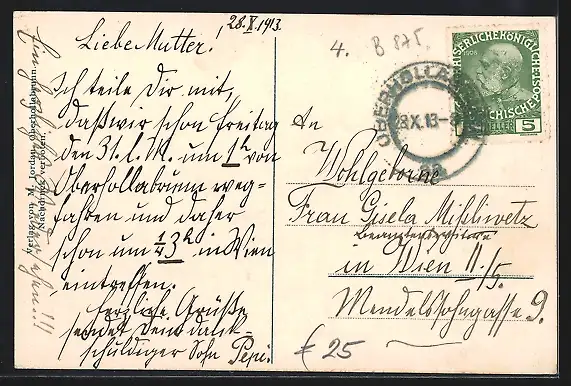 28.X.1913.
Liebe Mutter!
Ich teile Dir mit,
daß wir schon Freitag
den 31. l. M. um 1h von
Oberhollabrunn weg=
fahren und daher
schon um 1/4 3h in Wien
eintreffen.
Herzliche Grüße
sendet Dein dank=
schuldiger Sohn Pepi.
Verlag von M. Jordan, Oberhollabrunn.
Nachdruck verboten.
4.
B 875.
OBERHOLLABRUNN
28.X.13
KAISERLICHE KÖNIGLICHE
1908
5
An
Wohlgeborne
Frau Gisela Mißliwetz
Beamtenswitwe
in Wien II./5.
Mendelssohngasse 9.
€ 25